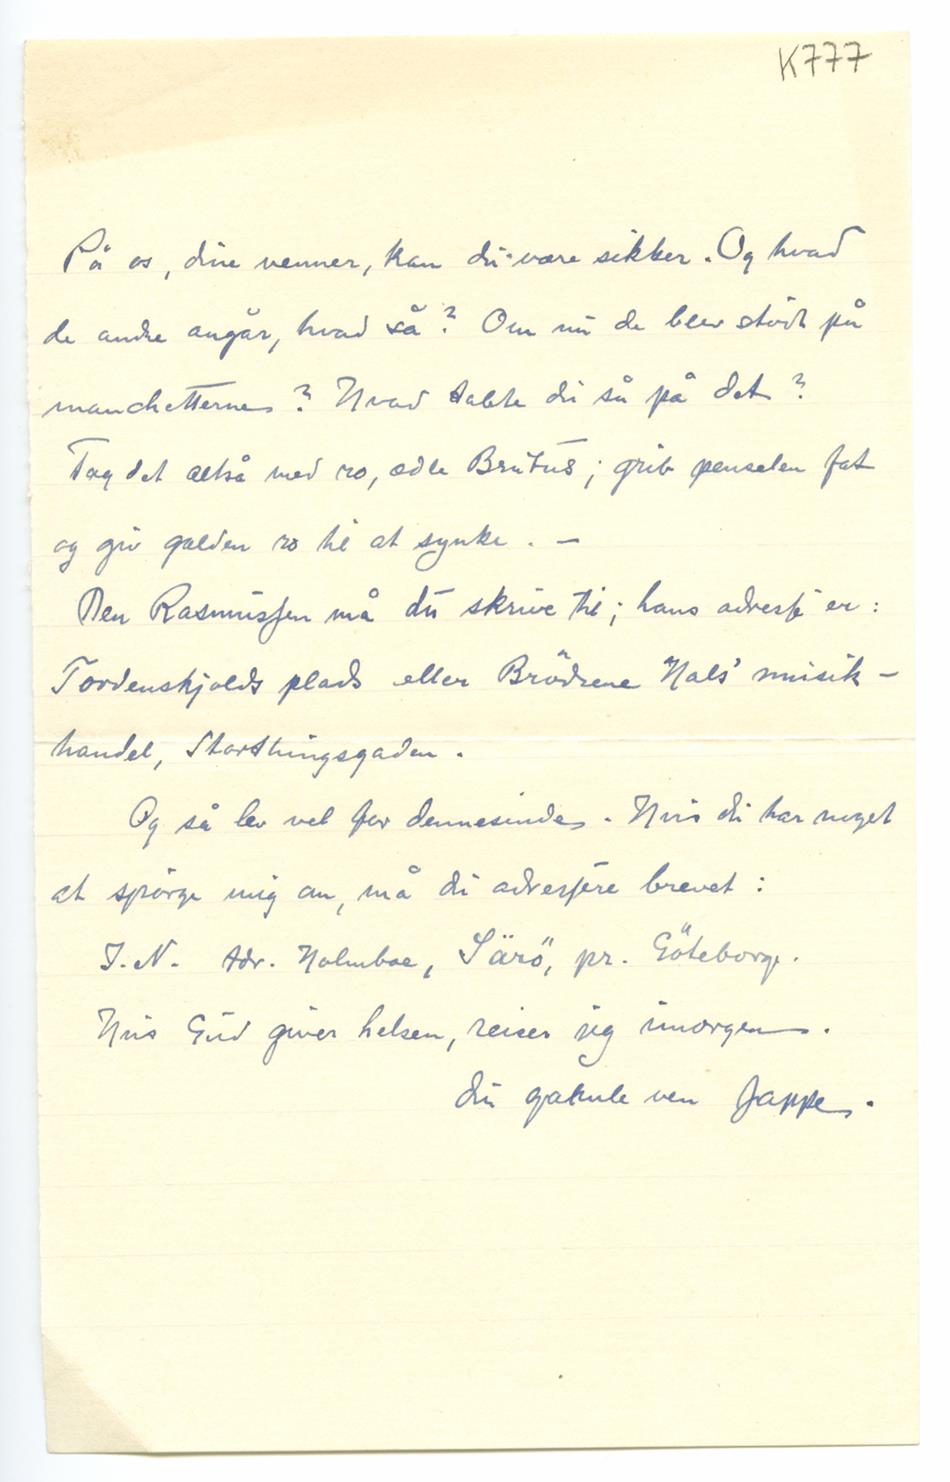 K777
På os, dine venner, kan du være sikker. Og hvad
de andre angår, hvad så? Om nu de blev stødt på
manchetterne? Hvad tabte du så på det?
Tag det altså med ro, ædle Brutus; grib penselen fat
og giv galden ro til at synke. –
Den Rasmussen må du skrive til; hans adresse er:
Tordenskjolds plads eller Brödrene Hals' musik-
handel, Storthingsgaden.
Og så lev vel for dennesinde. Hvis du har noget
at spörge mig om, må du adressere brevet:
J. N. Adr. Holmboe, Särö, pr. Göteborg.
Hvis Gud giver helsen, reiser jeg imorgen.
din gamle ven Jappe.